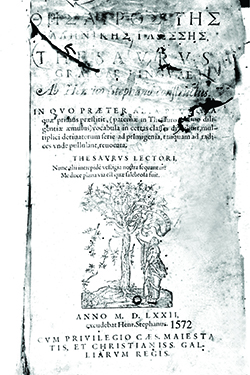 ΘΗΣΑΥΡΟΣ ΤΗΣ
ΕΛΛΗΝΙΚΗΣ ΓΛΩΣΣΗΣ,
THESAURUS
GRAECAE LINGUAE,
Ab Henrico Stephano constructus.
IN QVO PRÆTER
quæ primus præstitit, (paternæ in Thesauro Latino diligentiæ æmulus) vocabula in certas classes
multiplici deriuatorum serie ad primigenia, tanquam ad radices vnde pullulant, reuocata.
THESAVRVS LECTORI,
Nunc alii intrepidè vestigia nostra sequantur:
Me duce plana via est quæ salebrosa fuit.
ANNO M. D. LXXII,
excudebat Henr. Stephanus. 1572
CVM PRIVILEGIO CÆS. MAIESTA
TIS, ET CHRISTIANISS. GAL-
LIARVM REGIS.